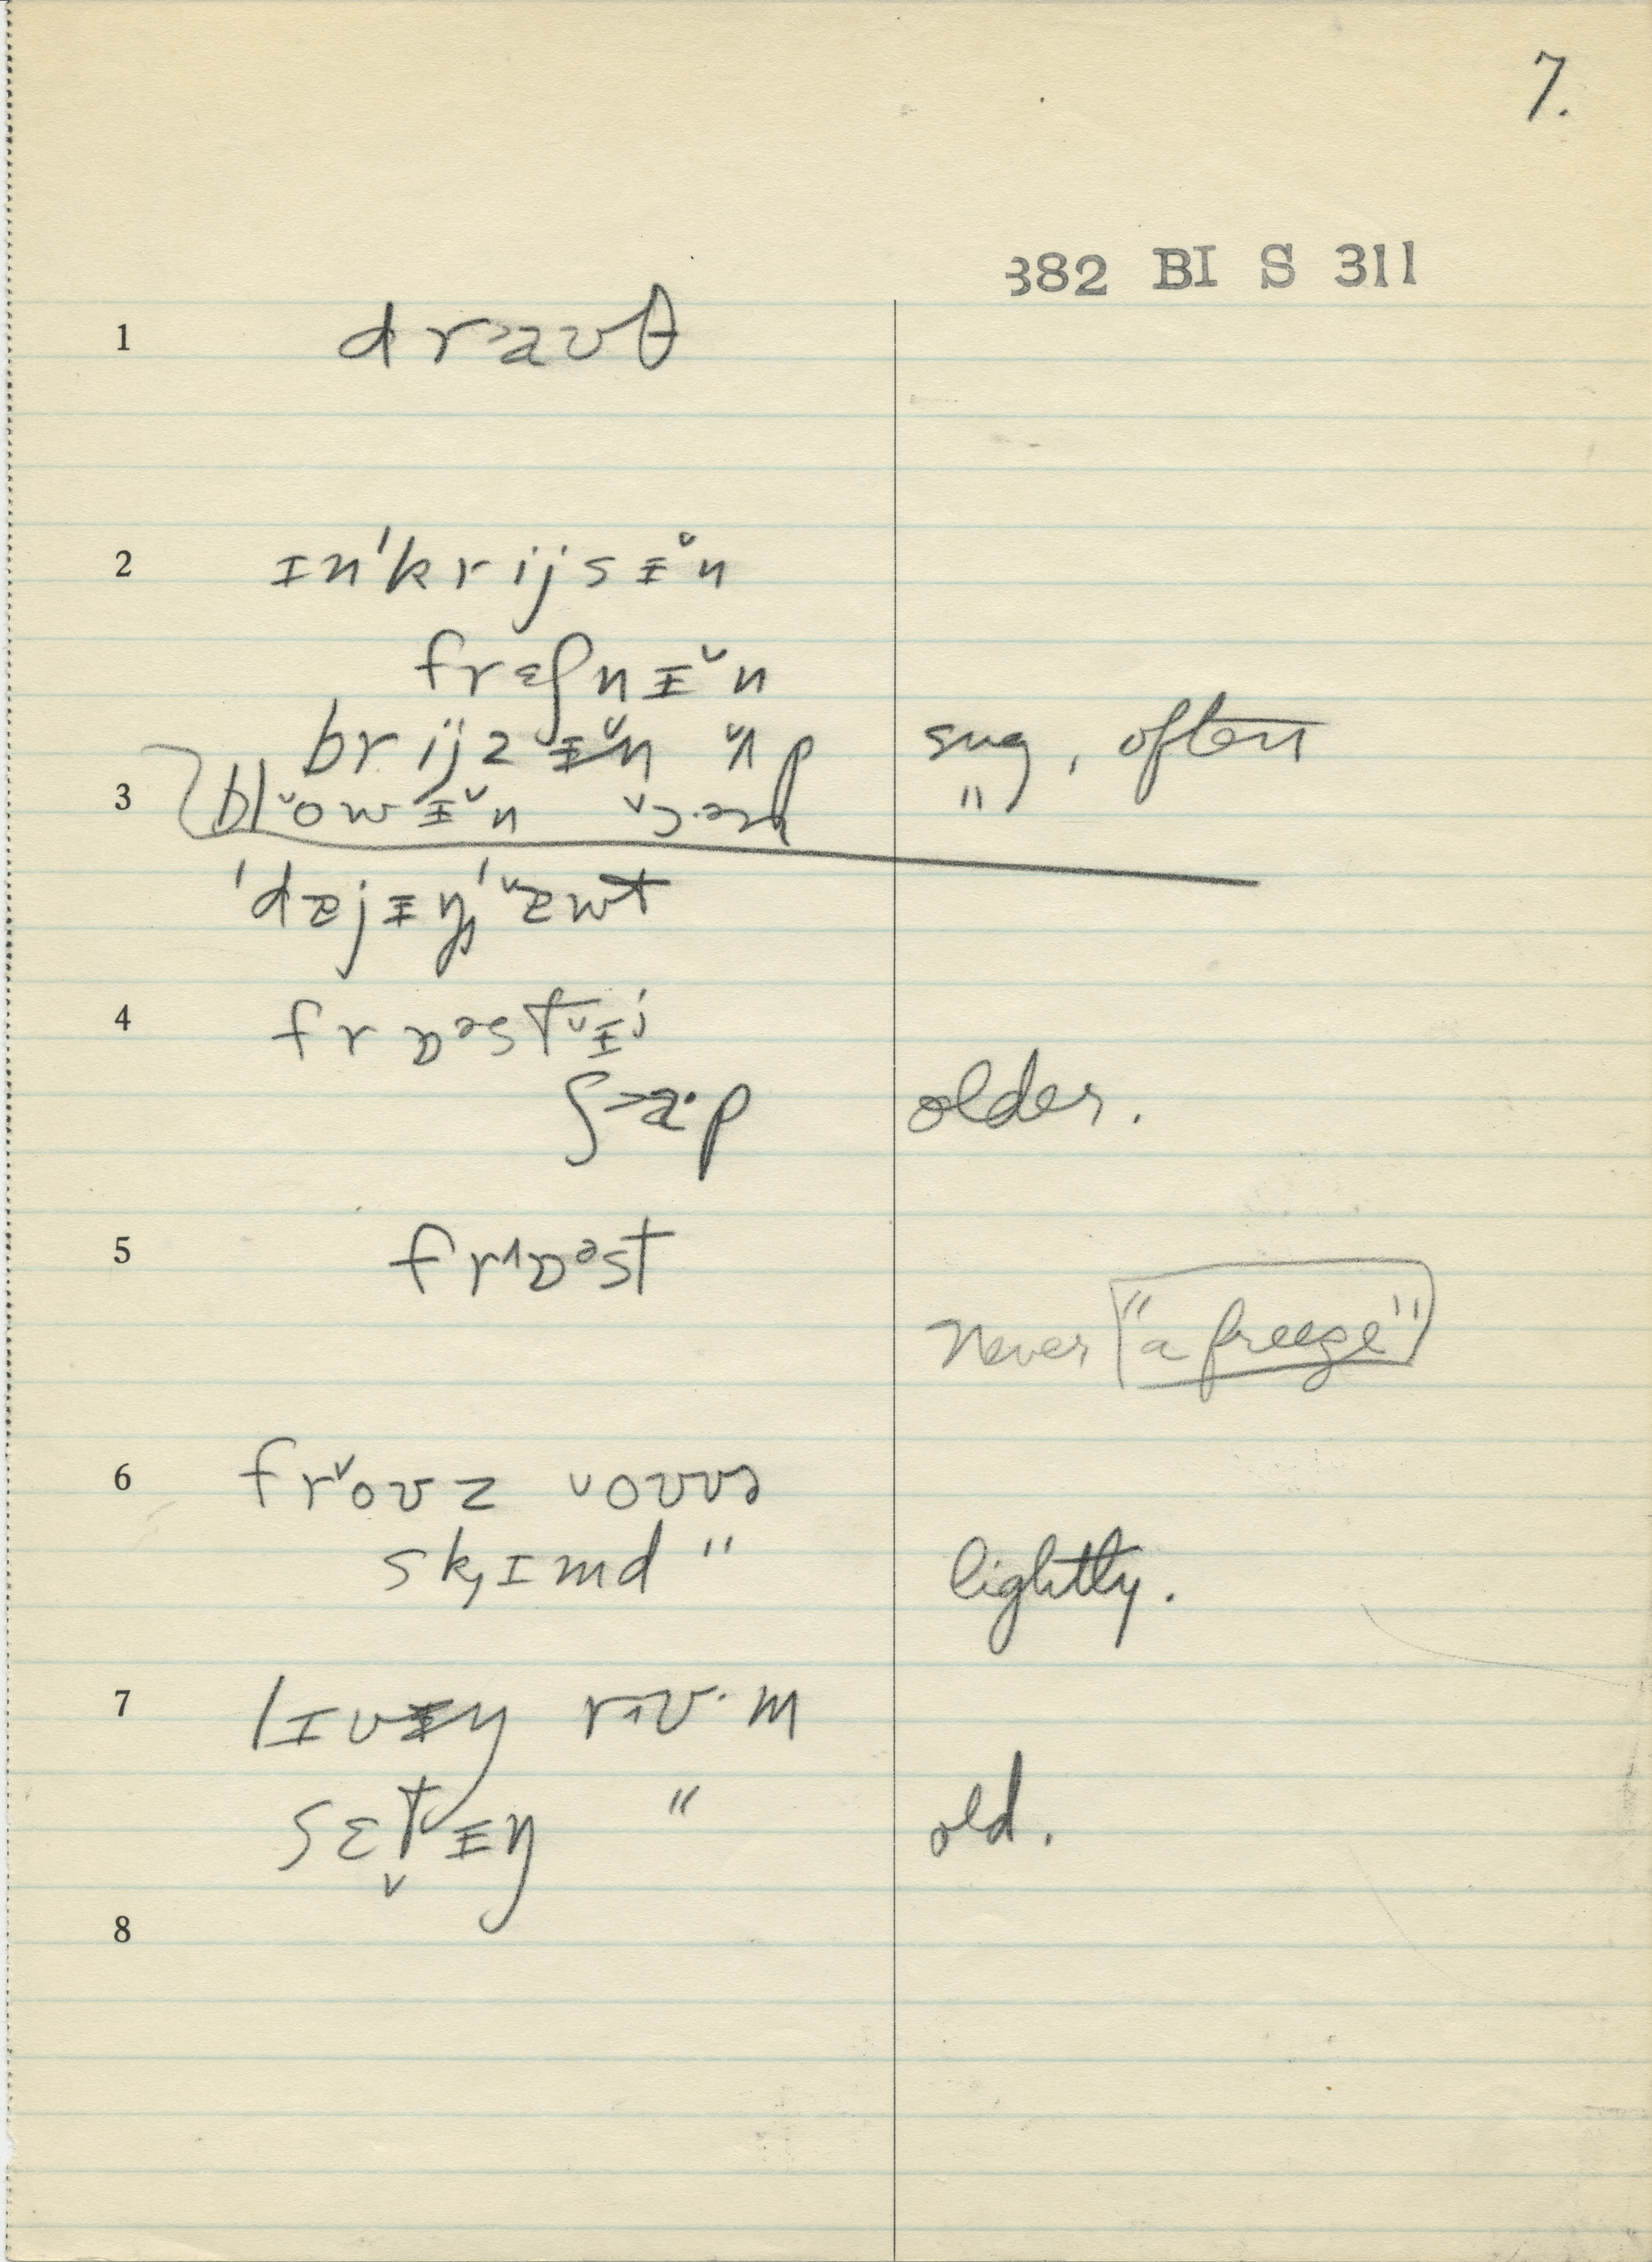 7.
382 BI S 311
1 dr˃aʊθ
2 ɪn'krijsɪ̵̆n
frɛʃnɪ̵̆n
brijzɪ̵̆n ʌ̆p sug, often
3 bl˅owɪ̵̆n "
'dæjɪ̵ŋ'˅æwt
4 frɒᵊst˅ɪ̵j
ʃ˃a·p older.
5 fr˄ɒᵊst
Never "a freeze"
6 fr˅oʊz ˅oʊvə
sk,ɪmd " lightly.
7 lɪvɪ̵ŋ rʊ·m
sɛt̬ɪ̵ŋ " old.
8